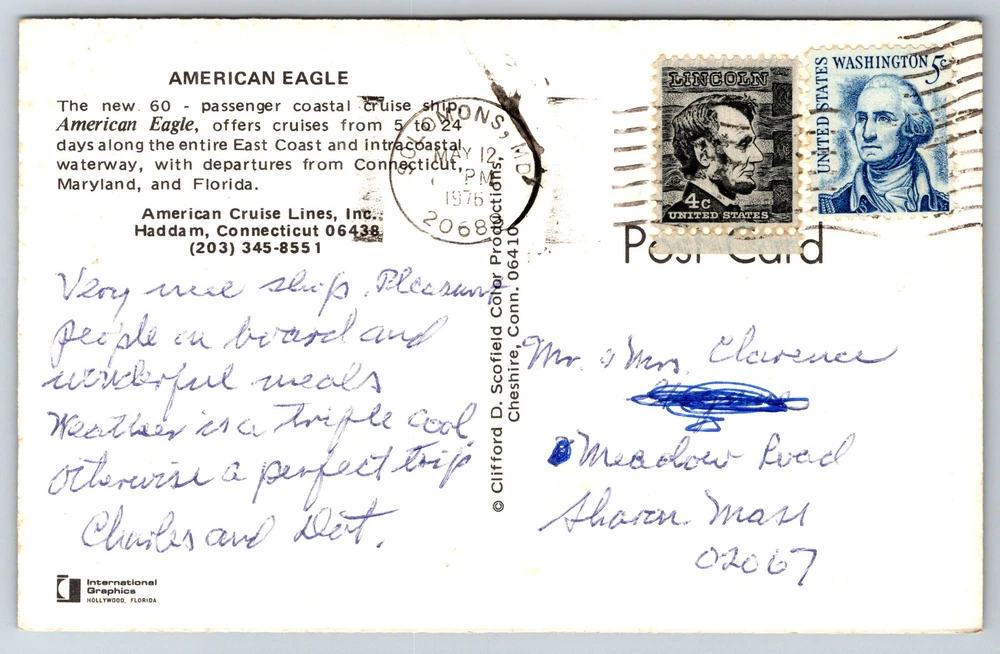 AMERICAN EAGLE
The new 60 - passenger coastal cruise ship,
American Eagle, offers cruises from 5 to 24
days along the entire East Coast and intracoastal
waterway, with departures from Connecticut,
Maryland, and Florida.
American Cruise Lines, Inc.
Haddam, Connecticut 06438
(203) 345-8551
Very nice ship. Pleasant
people on board and
wonderful meals
Weather is a triffle cool
otherwise a perfect trip
Charles and Dot.
International
Graphics
HOLLYWOOD, FLORIDA
© Clifford D. Scofield Color Productions,
Cheshire, Conn. 06410
SOLOMONS, MD
MAY 12
PM
1976
20688
LINCOLN
4c
UNITED STATES
UNITED STATES
WASHINGTON 5c
Post Card
Mr. & Mrs. Clarence
Meadow Road
Sharon Mass
02067